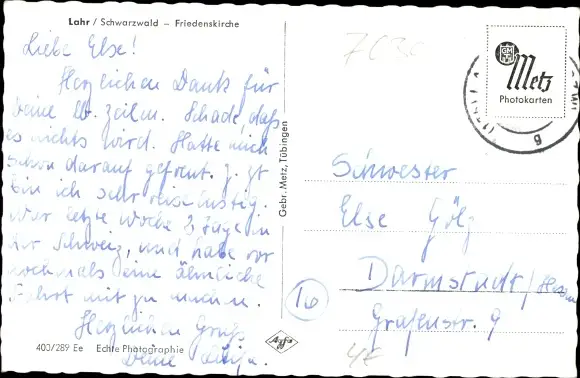 Lahr / Schwarzwald – Friedenskirche
Liebe Else!
Herzlichen Dank für
Deine lb. Zeilen. Schade daß
es nichts wird. Hatte mich
schon darauf gefreut. Z. Zt
bin ich sehr reiselustig.
War letzte Woche 3 Tage in
der Schweiz, und habe vor
nochmals eine ähnliche
Fahrt mit zu machen.
Herzlichen Gruß
Deine
400/289 Ee Echte Photographie
Agfa
Gebr. Metz, Tübingen
GMT
Metz
Photokarten
Schwester
Else Gölz
Darmstadt/Hessen
Grafenstr. 9
16